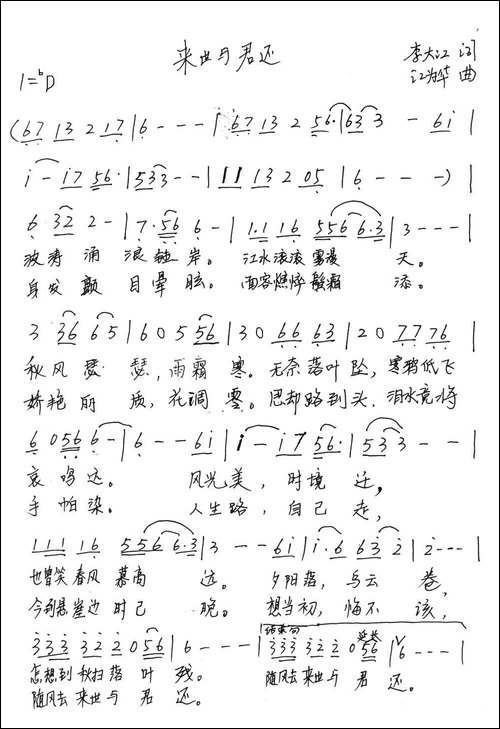 来世与君还
李大江 词
1=ᵇD
江为华 曲
(67 13 2 17 | 6 - - - | 67 13 2 56· | 633 - 6i |
i - i7 56· | 533 - - | 11 13 2 05 | 6 - - -) |
6 32 2 - | 7·56 6 - | 1·1 16 556 6·3 | 3 - - - |
波涛涌浪 岸。江水滚滚雾漫天。
身发颤目晕眩。面容憔悴鬓霜添。
3 36 65 | 60 5 56 | 30 66 63 | 20 77 76 |
秋风瑟瑟,雨霜寒。无奈落叶坠,寒鸦低飞
娇艳丽质,花凋零。思却路到头,泪水竟将
6 056 6 - | 6 - - 6i | i - i7 56· | 533 - - |
哀鸣远。风光美,时境迁,
手帕染。人生路,自己走,
111 16 556 6·3 | 3 - - 6i | i·6 63 2 | 2 - - - |
也曾笑春风慕高远。夕阳落,乌云卷,
今到悬崖边时已晚。想当初,悔不该,
结束句
延长
333 322 056 | 6 - - - | 333 322 056 | 6 - - - |
怎想到秋扫落叶残。随风去来世与君还。
随风去来世与君还。